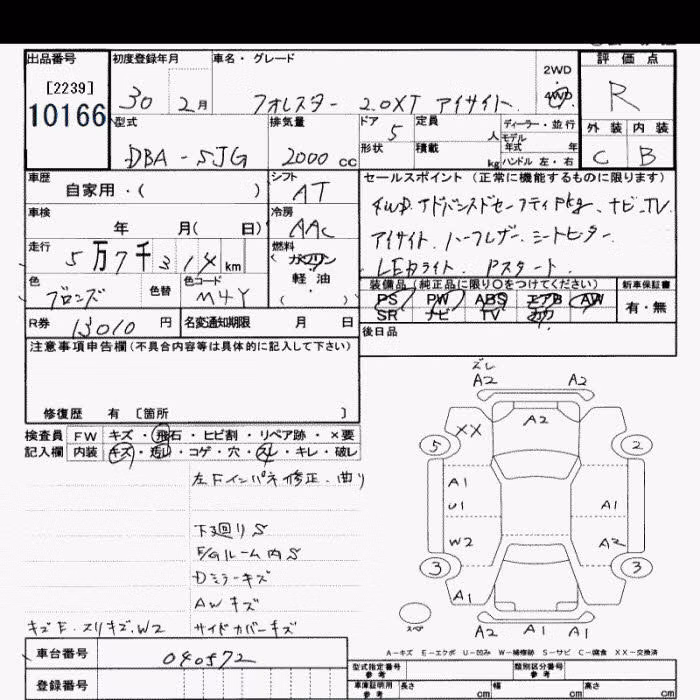 出品番号 初度登録年月 車名・グレード 評価点
[2239] 2WD
10166 30 2月 フォレスター 2.0XT アイサイト 4WD R
型式 排気量 ドア 5 定員 人 ディーラー・並行 外装 内装
モデル年式 年
DBA-SJG 2000 cc 形状 積載 kg ハンドル 左・右 C B
車歴 シフト セールスポイント (正常に機能するものに限ります)
自家用・( ) AT 4WD.アドバンスドセーフティPkg、ナビ.TV
車検 冷房
年 月( 日) AAC アイサイト.ハーフレザー.シートヒーター
走行 燃料
5万7千314km ガソリン LEDライト. Pスタート.
色 色替 色コード 軽油 装備品 (純正品に限り○をつけてください) 新車保証書
ブロンズ M4Y ( ・ ) PS PW ABS エアB AW 有・無
SR ナビ TV カワ
R券 13010 円 名変通知期限 月 日 後日品
注意事項申告欄(不具合内容等は具体的に記入して下さい)
修復歴 有 〔箇所 〕
検査員 FW キズ・飛石・ヒビ割・リペア跡・×要
記入欄 内装 キズ・汚レ・コゲ・穴・スレ・キレ・破レ
左Fインパネ修正.曲り
下廻りS
F/Gルーム内S
Dミラーキズ
AWキズ
キズE.スリキズ.W2 サイドカバーキズ
ズレ
A2 A2
A2
XX
5 2
A1
U1 A1
W2 A2
3 3
A1
スペア
A2 A1 A1
A-キズ E-エクボ U-凹み W-補修跡 S-サビ C-腐食 XX-交換済
車台番号 040572 型式指定番号 参考 類別区分番号 参考
登録番号 車庫証明用 参考 長さ cm 幅 cm 高さ cm